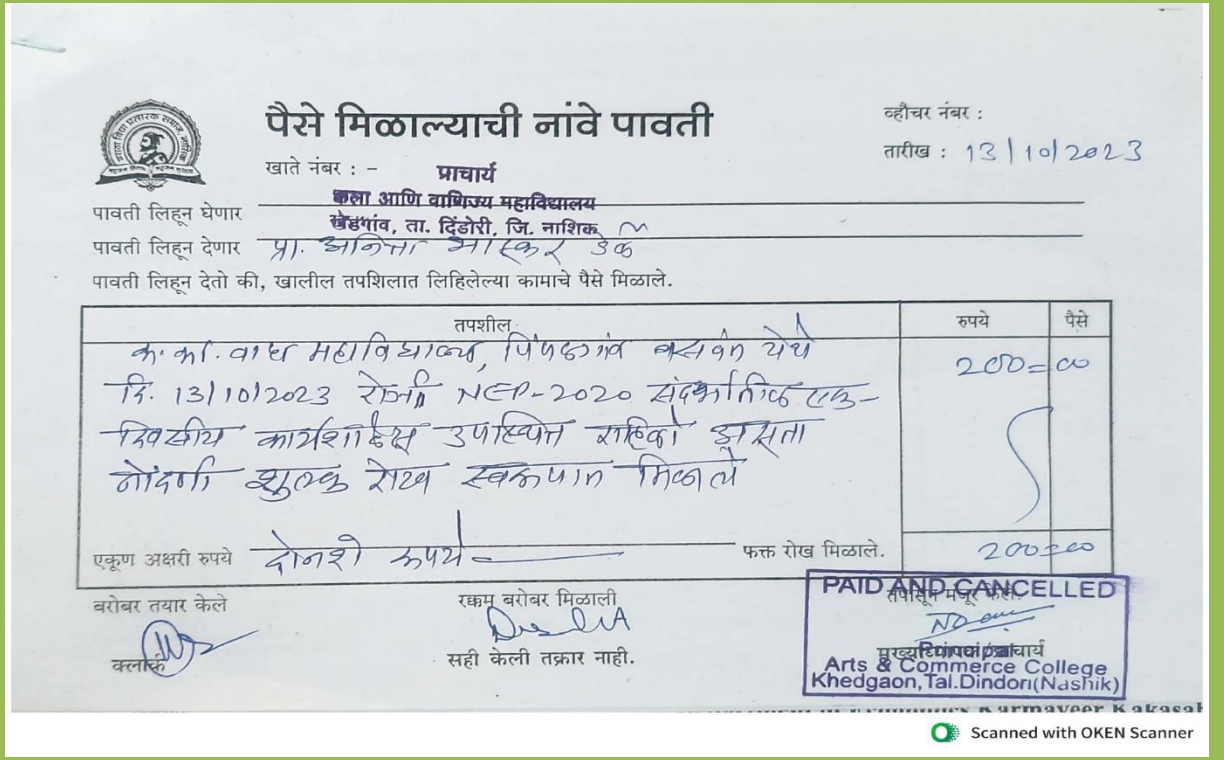 पैसे मिळाल्याची नांवे पावती
व्हौचर नंबर :
तारीख : 13/10/2023
खाते नंबर : –
प्राचार्य
कला आणि वाणिज्य महाविद्यालय
खेडगांव, ता. दिंडोरी, जि. नाशिक
पावती लिहून घेणार
पावती लिहून देणार प्रा. अनिता भास्कर डेर्ले
पावती लिहून देतो की, खालील तपशिलात लिहिलेल्या कामाचे पैसे मिळाले.
तपशील रुपये पैसे
क. का. वाघ महाविद्यालय, पिंपळगांव बसवंत येथे 200=00
दि. 13/10/2023 रोजी NEP-2020 संदर्भातील एक-
दिवसीय कार्यशाळेस उपस्थित राहिले असता
नोंदणी शुल्क रोख स्वरूपात मिळाले
एकूण अक्षरी रुपये दोनशे रुपये फक्त रोख मिळाले. 200=00
बरोबर तयार केले
क्लार्क
रक्कम बरोबर मिळाली
सही केली तक्रार नाही.
तपासून मंजूर केले.
मुख्याध्यापक/प्राचार्य
PAID AND CANCELLED
Principal
Arts & Commerce College
Khedgaon, Tal.Dindori(Nashik)
Karmaveer Kakasah
Scanned with OKEN Scanner